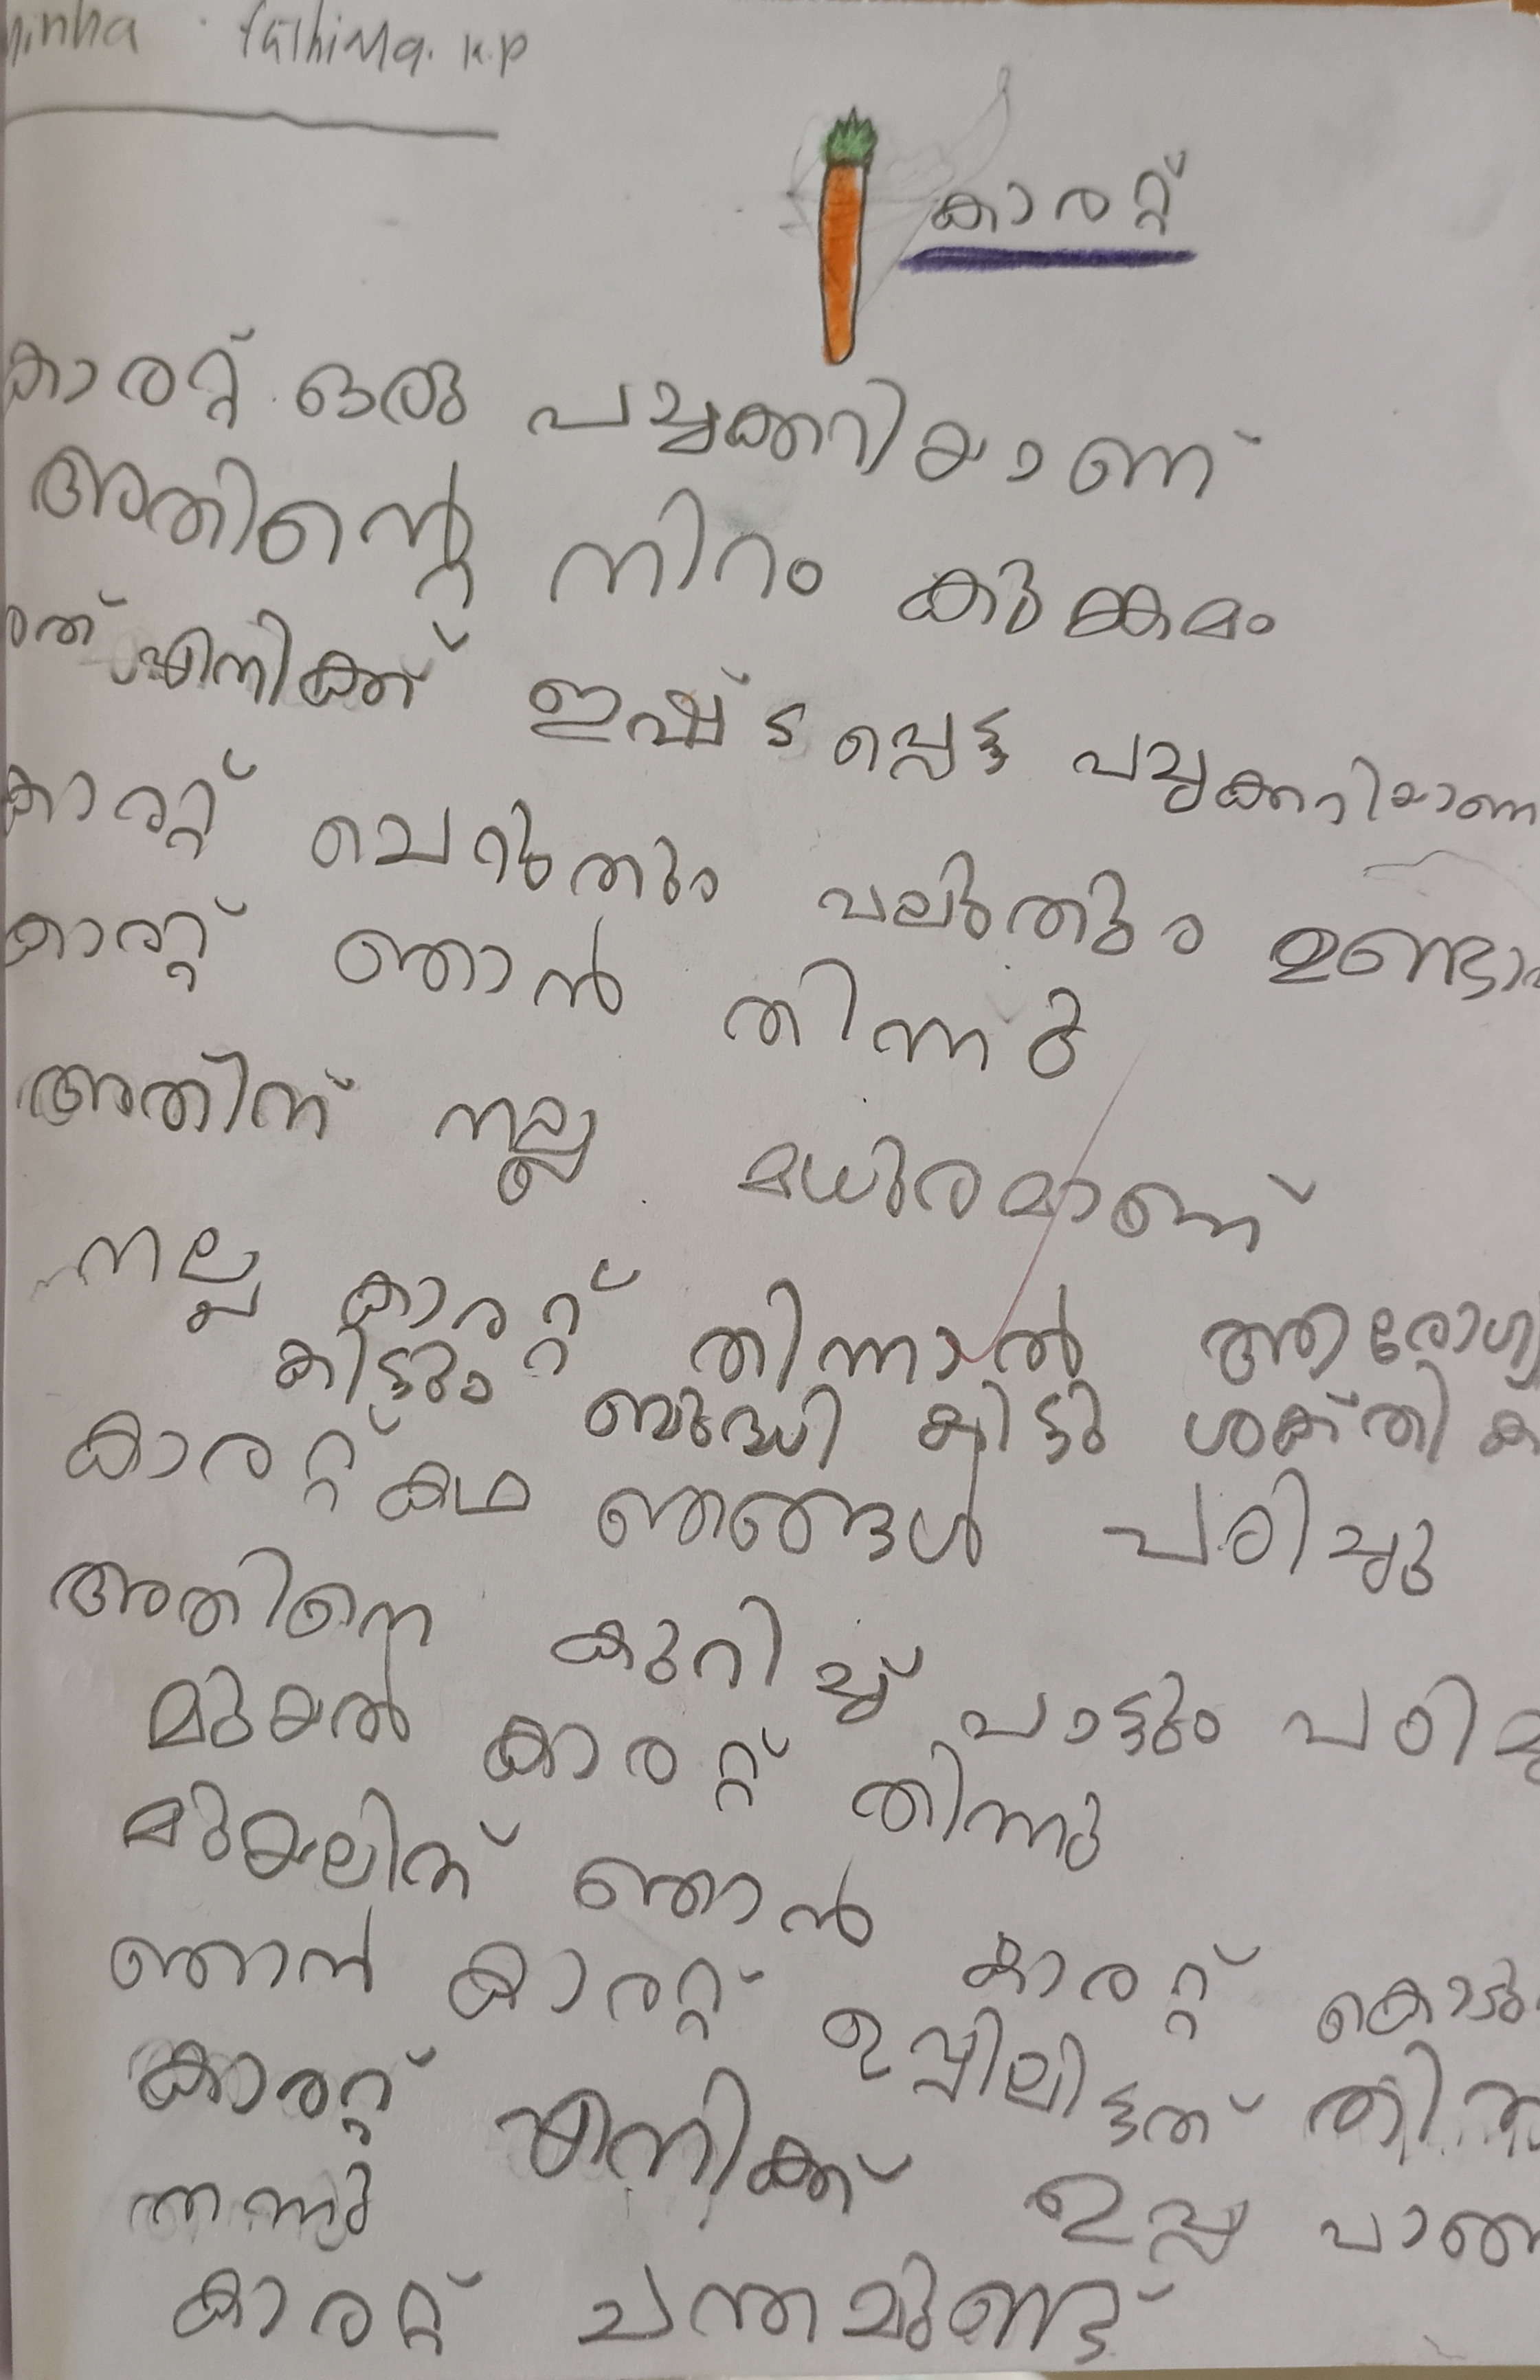 fathima. K.P
കാരറ്റ്
കാരറ്റ് ഒരു പച്ചക്കറിയാണ്
അതിന്റെ നിറം കുങ്കമം
എനിക്ക് ഇഷ്ട പ്പെട്ട പച്ചക്കറിയാണ
കാരറ്റ് ചെറുതും വലുതും
കാരറ്റ് ഞാൻ തിന്നു
അതിന് നല്ല മധുരമാണ്
നല്ല കാരറ്റ് തിന്നാൽ
കിട്ടും ബുദ്ധി കിട്ടു ശക്തി
കാരറ്റ് കഥ ഞങ്ങൾ പഠിച്ചു
അതിനെ കുറിച്ച് പാട്ടും
മുയൽ കാരറ്റ് തിന്നു
മുയലിന് ഞാൻ കാരറ്റ്
ഞാൻ കാരറ്റ് ഉപ്പിലിട്ടത്
കാരറ്റ് എനിക്ക് ഉപ്പ
തന്നു
കാരറ്റ് ചന്തമുണ്ട്